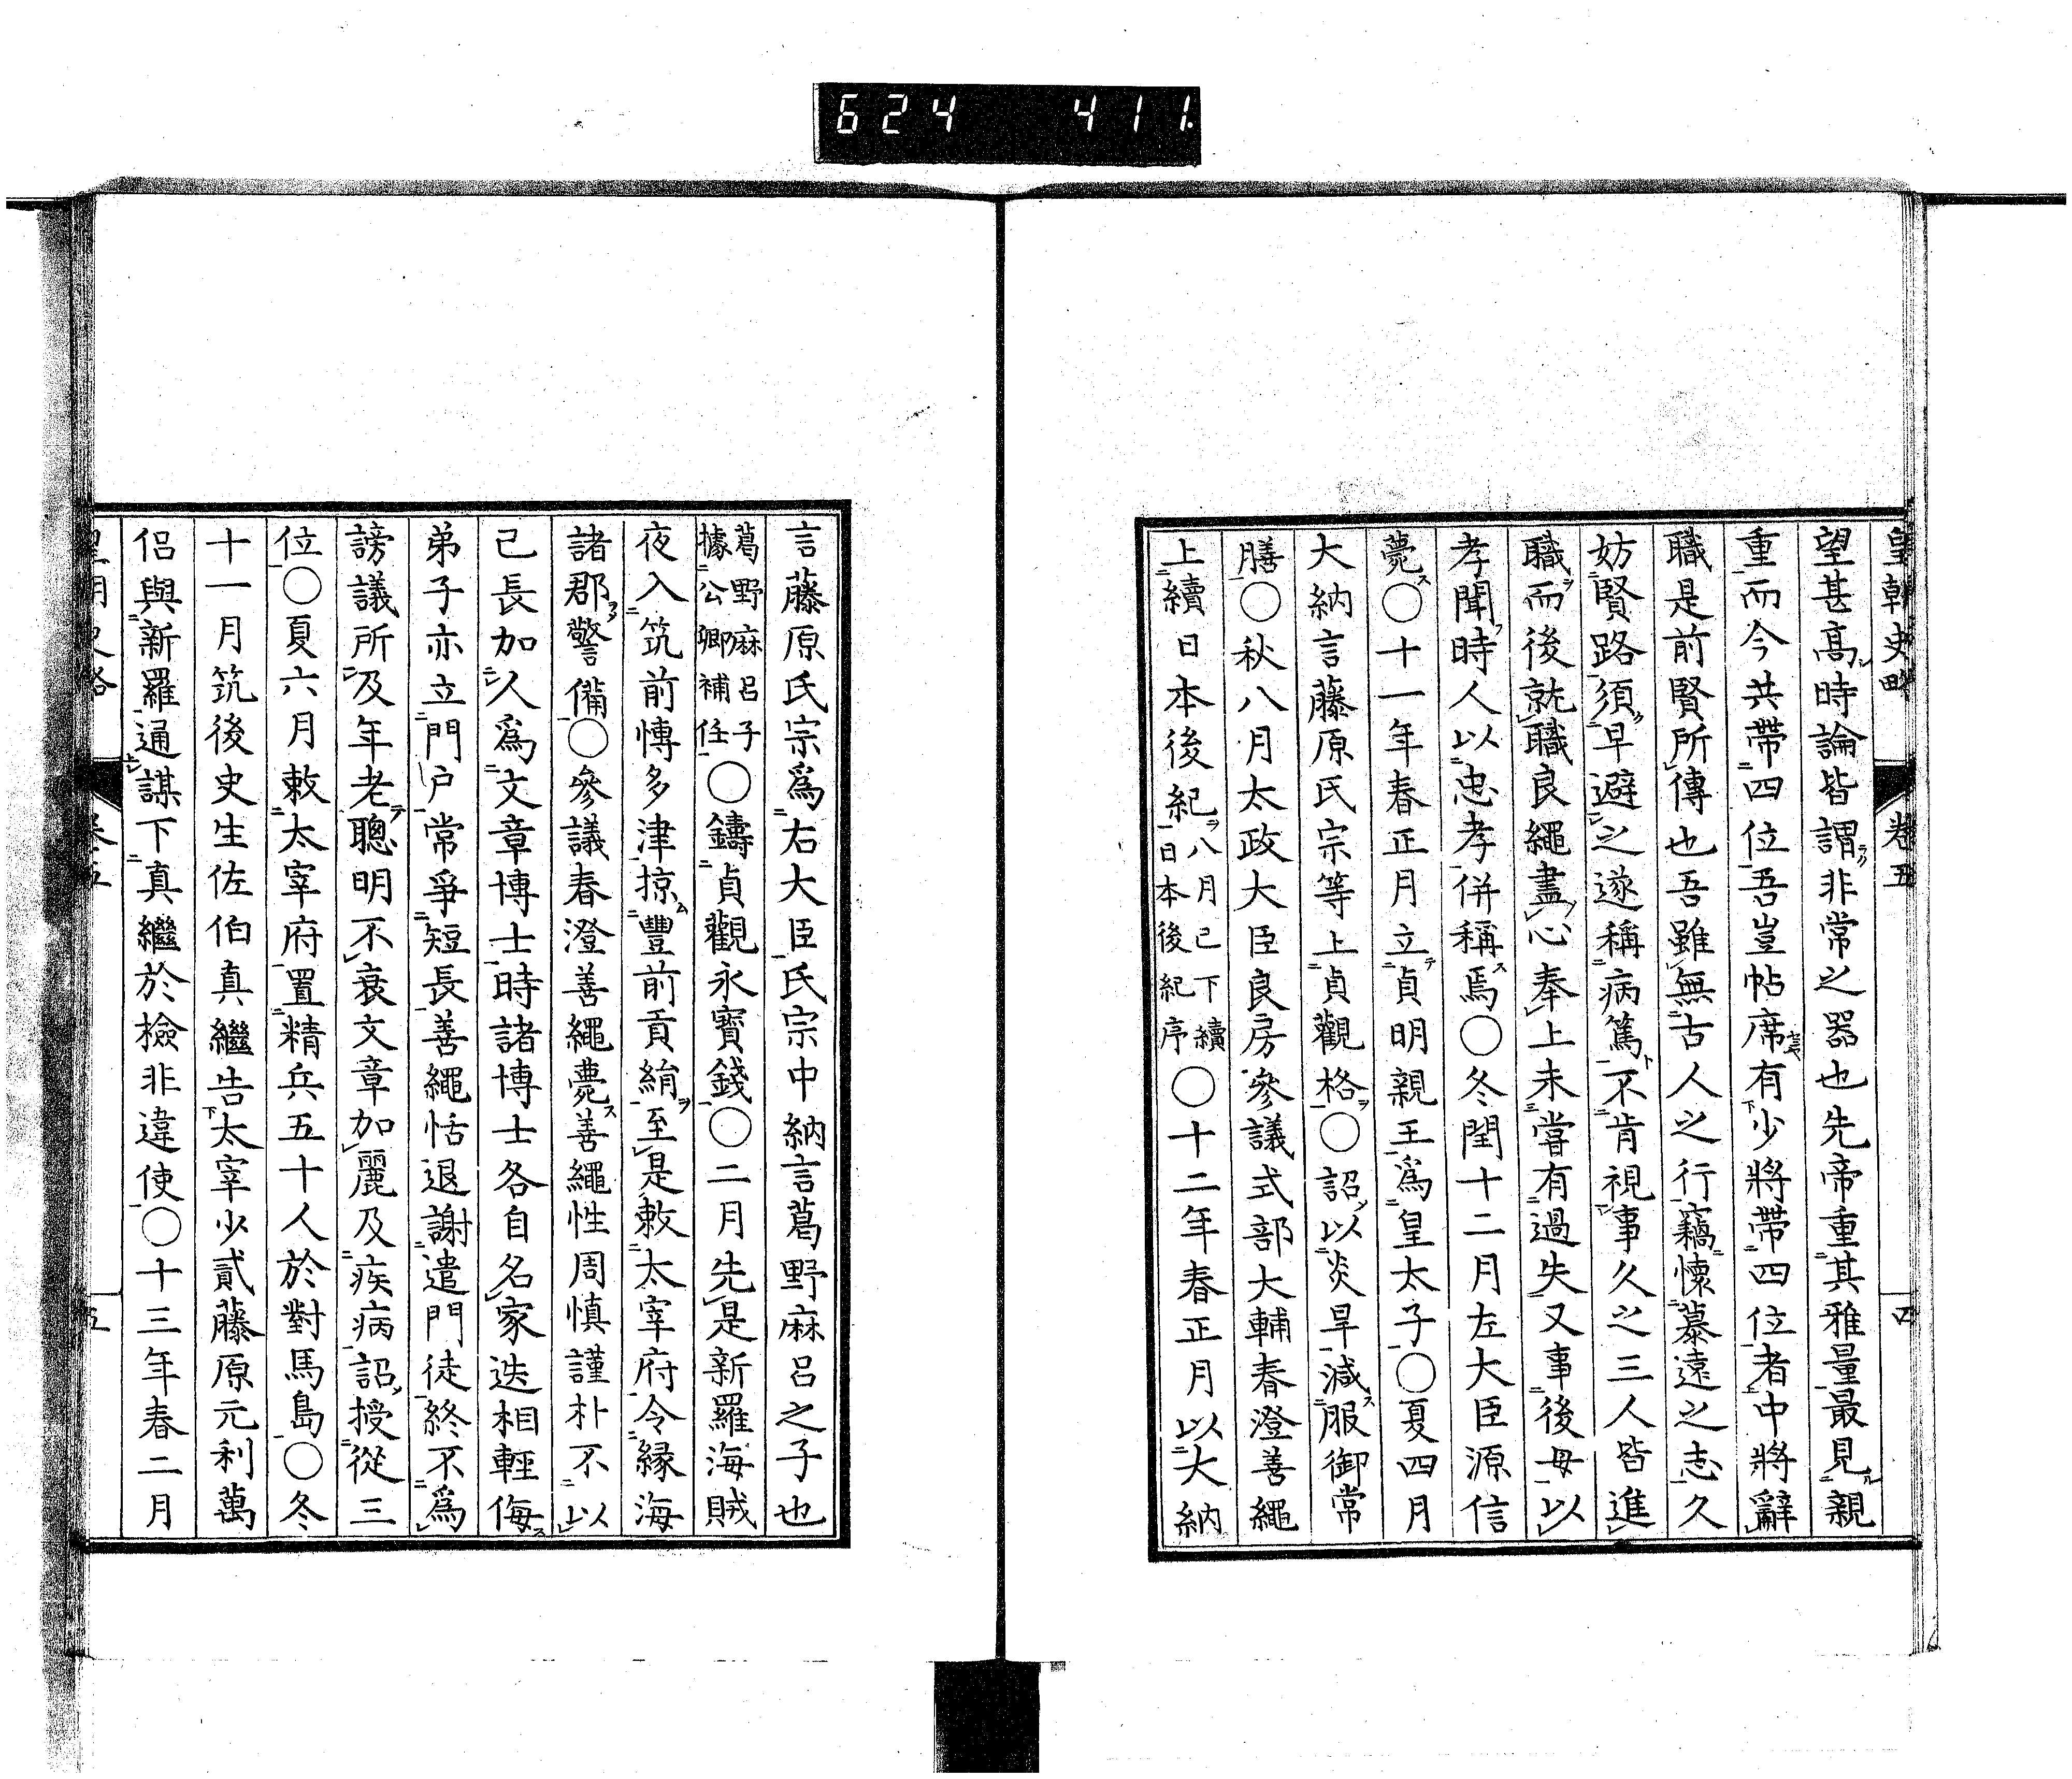 624 411.
皇朝史略 卷五 四
望甚高時論皆謂非常之器也先帝重其雅量最見親
重而今共帶四位吾豈帖席有少將帶四位者中將辭
職是前賢所傳也吾雖無古人之行竊懷慕遠之志久
妨賢路須早避之遂稱病篤不肯視事久之三人皆進
職而後就職良繩盡心奉上未嘗有過失又事後母以
孝聞時人以忠孝併稱焉○冬閏十二月左大臣源信
薨○十一年春正月立貞明親王爲皇太子○夏四月
大納言藤原氏宗等上貞觀格○詔以炎旱減服御常
膳○秋八月太政大臣良房參議式部大輔春澄善繩
上續日本後紀八月已下續日本後紀序○十二年春正月以大納
言藤原氏宗爲右大臣氏宗中納言葛野麻呂之子也
葛野麻呂子據公卿補任○鑄貞觀永寶錢○二月先是新羅海賊
夜入筑前博多津掠豐前貢絹至是敕太宰府令緣海
諸郡警備○參議春澄善繩薨善繩性周慎謹朴不以
己長加人爲文章博士時諸博士各自名家迭相輕侮
弟子亦立門戶常爭短長善繩恬退謝遣門徒終不爲
謗議所及年老聰明不衰文章加麗及疾病詔授從三
位○夏六月敕太宰府置精兵五十人於對馬島○冬
十一月筑後史生佐伯真繼告太宰少貳藤原元利萬
侣與新羅通謀下真繼於檢非違使○十三年春二月